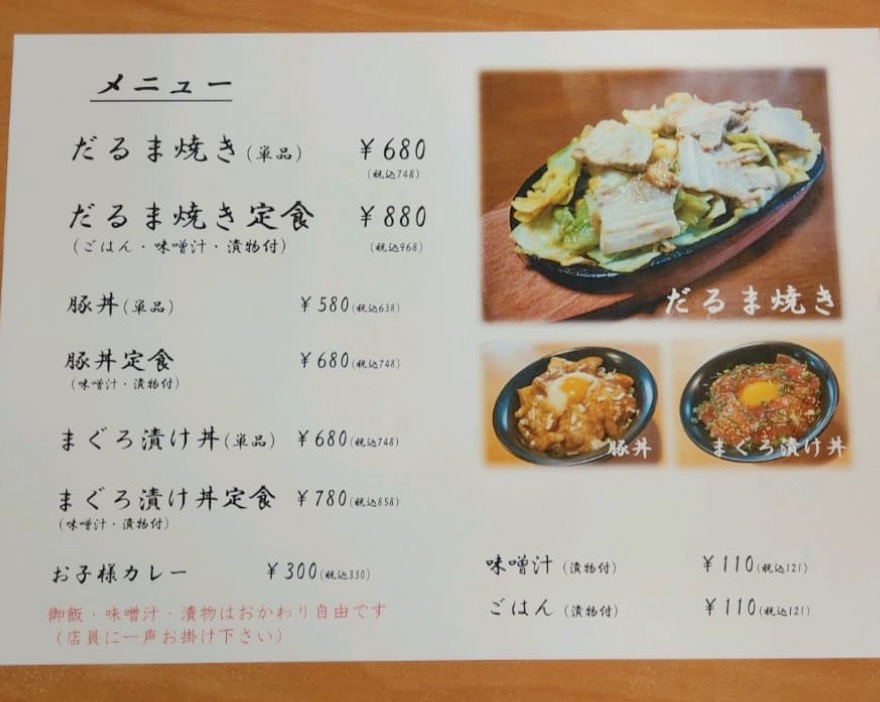 メニュー
だるま焼き(単品) ¥680
(税込748)
だるま焼き定食 ¥880
(ごはん・味噌汁・漬物付) (税込968)
豚丼(単品) ¥580(税込638)
豚丼定食 ¥680(税込748)
(味噌汁・漬物付)
まぐろ漬け丼(単品) ¥680(税込748)
まぐろ漬け丼定食 ¥780(税込858)
(味噌汁・漬物付)
お子様カレー ¥300(税込330)
御飯・味噌汁・漬物はおかわり自由です
(店員に一声お掛け下さい)
だるま焼き
豚丼
まぐろ漬け丼
味噌汁(漬物付) ¥110(税込121)
ごはん(漬物付) ¥110(税込121)